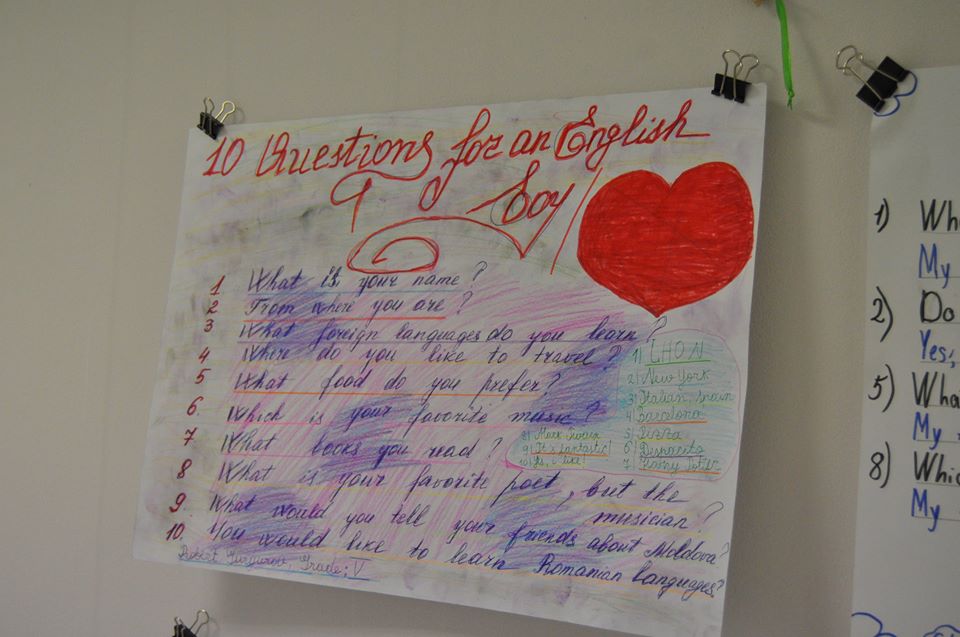 10 Questions for an English
Boy
1 What is your name?
2 From where you are?
3 What foreign languages do you learn?
4 Where do you like to travel?
5 What food do you prefer?
6. Which is your favorite music?
7 What books you read?
8 What is your favorite poet, but the
musician?
9. What would you tell your friends about Moldova?
10. You would like to learn Romanian languages?
Grade: V
1) JHON
2) New York
3) Italian, Spain
4) Barcelona
5) Pizza
6) Despacito
7)
8) Mark
9) It's fantastic!
10) Yes, I like!
1) Wh
My
2) Do
Yes,
5) Wha
My
8) Whic
My